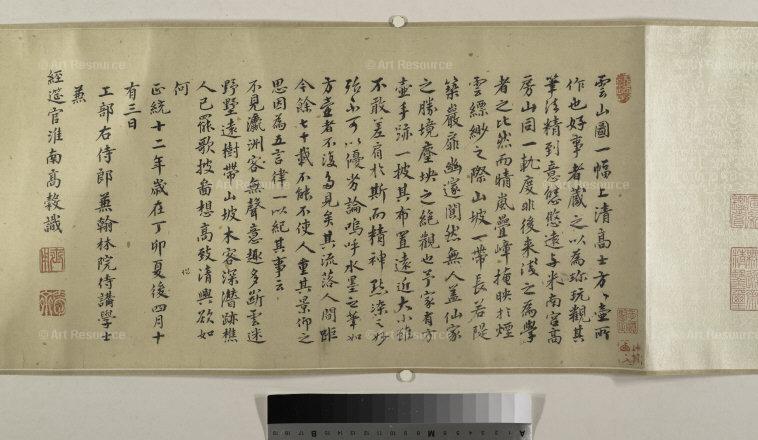 雲山圖一幅上清高士方〻壺所
作也好事者藏之以為珍玩觀其
筆法精到意態悠遠与米南宮高
房山同一軌度非後来淺之為學
者之比然而晴嵐疊峰掩映於煙
雲縹緲之際山坡一帶長若隄
築巖扉幽邃闃然無人蓋仙家
之勝境塵坱之絶觀也予家有方
壺手跡一披其布置遠近大小雖
不敢差肩於斯而精神點染之妙
殆不可以優劣論嗚呼水墨之筆如
方壺者不復多見矣其流落人間距
今餘七十載不能不使人重其景仰之
思因為五言律一以紀其事云
不見瀛洲客無聲意趣多斷雲迷
野墅遠樹帶山坡木客深潛跡樵
人已罷歌披啚想高致清興欲如
何
正統十二年歲在丁卯夏後四月十
有三日
工部右侍郎兼翰林院侍講學士
兼
經筵官淮南高穀識
© Art Resource
© Art Resource
© Art Resource
© Art Resource
© Art Resource
© Art Resource